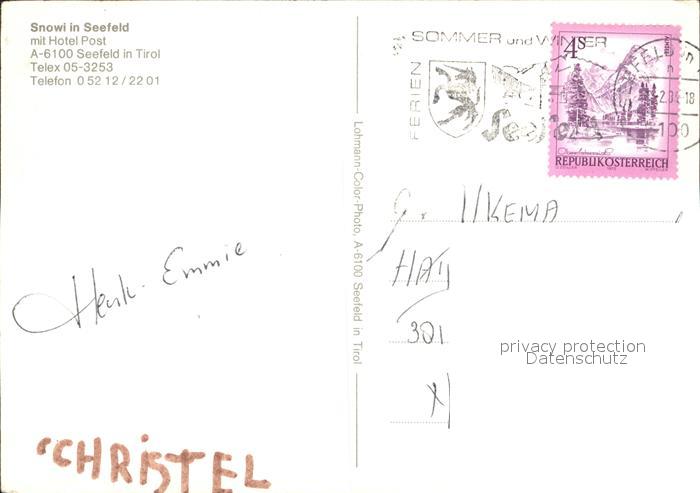 Snowi in Seefeld
mit Hotel Post
A-6100 Seefeld in Tirol
Telex 05-3253
Telefon 0 52 12 / 22 01
Henk - Emmie
CHRISTEL
Lohmann-Color-Photo, A-6100 Seefeld in Tirol
FERIEN
SOMMER und WINTER
4S
REPUBLIK ÖSTERREICH
G. IJKEMA
301
privacy protection
Datenschutz